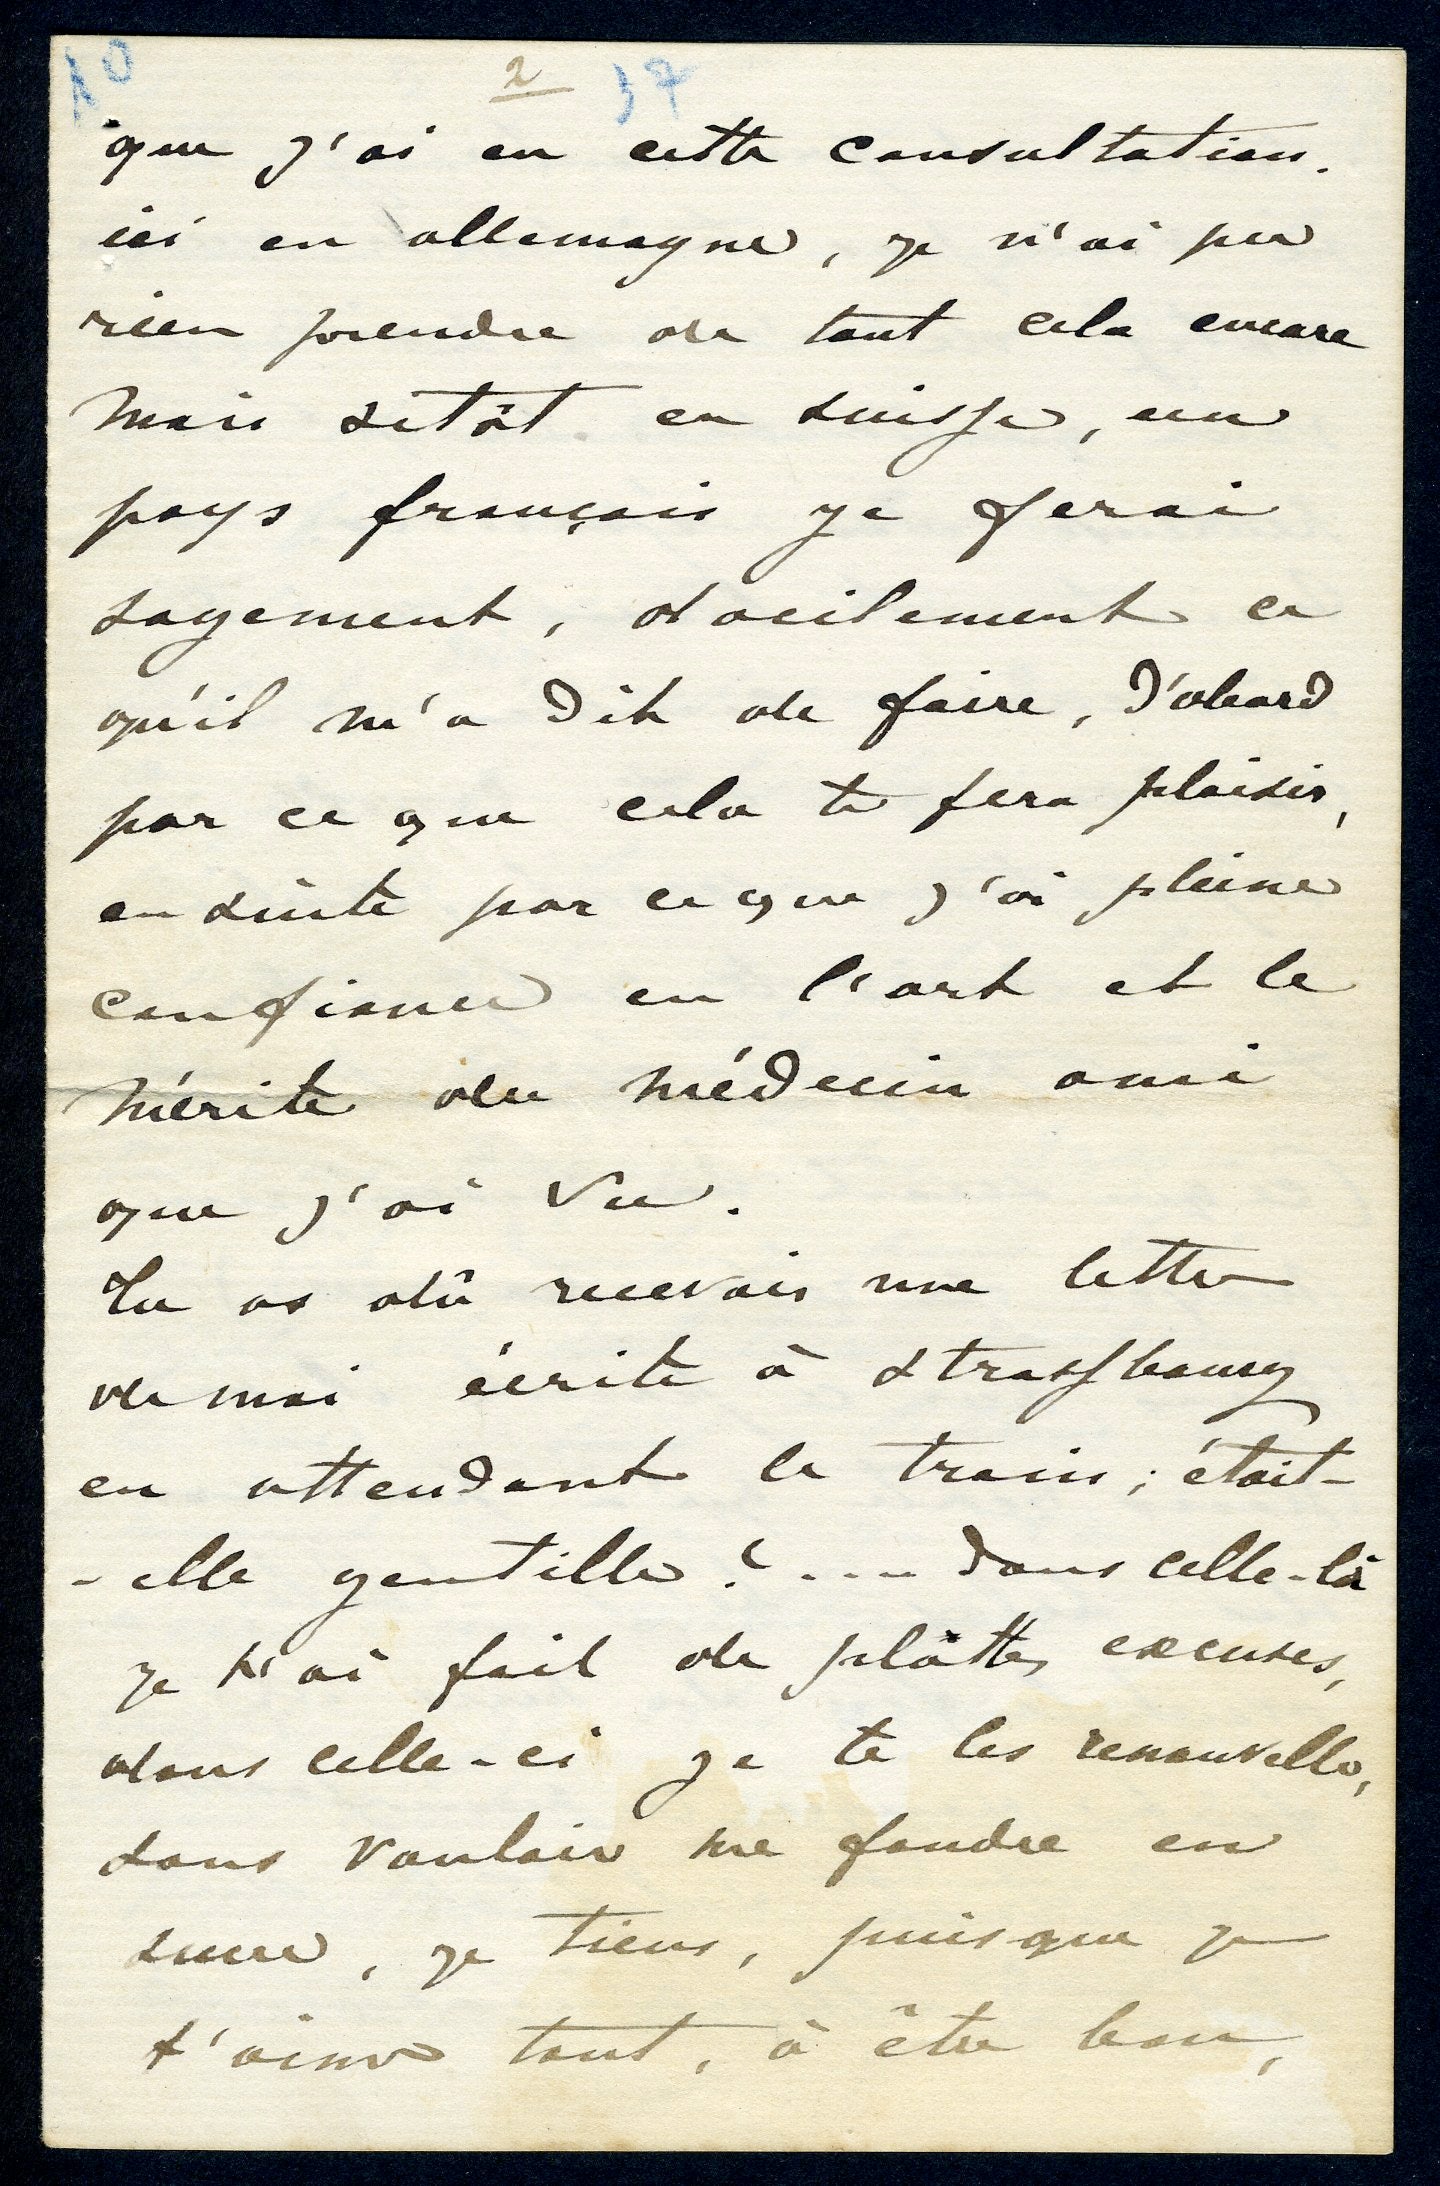 10 2 37
que j'ai eu cette consultation.
ici en allemagne, je n'ai pu
rien prendre de tout cela encore
mais sitôt en suisse, en
pays français je ferai
sagement, docilement ce
qu'il m'a dit de faire, d'abord
par ce que cela te fera plaisir,
ensuite par ce que j'ai pleine
confiance en l'art et le
mérite du médecin ami
que j'ai vu.
Tu as dû recevoir une lettre
de moi écrite à strassbourg
en attendant le train ; était-
-elle gentille ? .... dans celle-là
je t'ai fait de plâttes excuses,
dans celle-ci je te les renouvelle,
sans vouloir me fondre en
sucre, je tiens, puisque je
t'aime tant, à être bon,